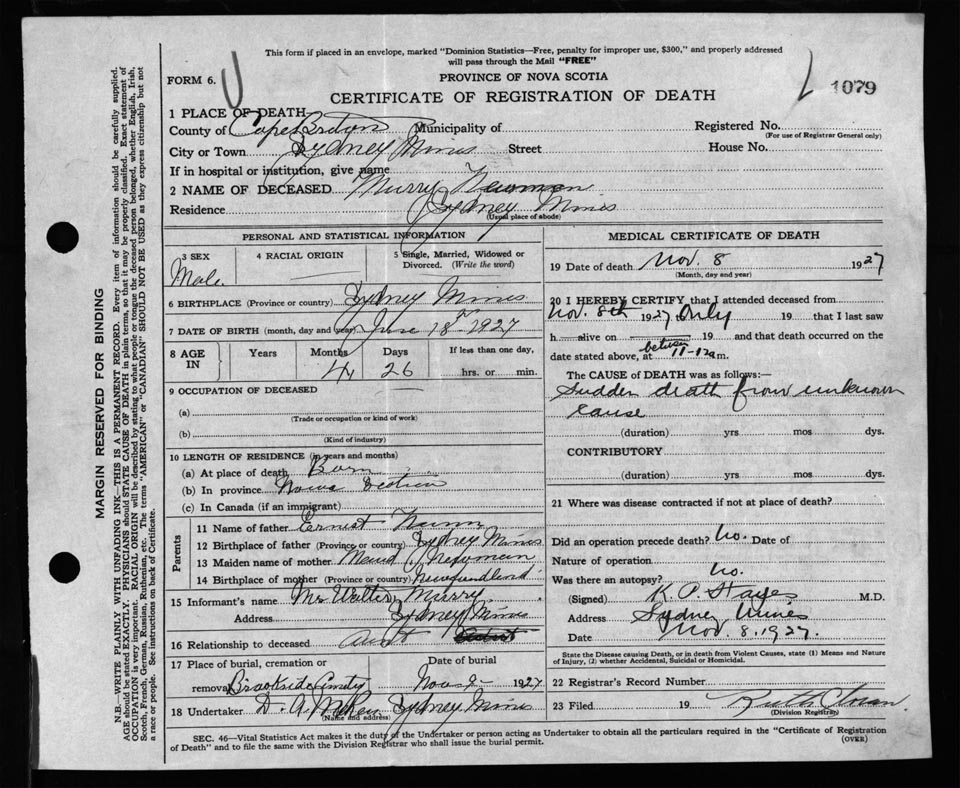 This form if placed in an envelope, marked "Dominion Statistics—Free, penalty for improper use, $300," and properly addressed
will pass through the Mail "FREE"
FORM 6.
PROVINCE OF NOVA SCOTIA
CERTIFICATE OF REGISTRATION OF DEATH
1079
1 PLACE OF DEATH
County of Cape Breton Municipality of Registered No.
(For use of Registrar General only)
City or Town Sydney Mines Street House No.
If in hospital or institution, give name
2 NAME OF DECEASED Murry Newman
Residence Sydney Mines
(Usual place of abode)
PERSONAL AND STATISTICAL INFORMATION
3 SEX 4 RACIAL ORIGIN 5 Single, Married, Widowed or
Divorced. (Write the word)
Male
6 BIRTHPLACE (Province or country) Sydney Mines
7 DATE OF BIRTH (month, day and year) June 18th 1927
8 AGE IN Years Months Days If less than one day,
4 26 hrs. or min.
9 OCCUPATION OF DECEASED
(a)
(Trade or occupation or kind of work)
(b)
(Kind of industry)
10 LENGTH OF RESIDENCE (in years and months)
(a) At place of death Born
(b) In province Nova Scotia
(c) In Canada (if an immigrant)
Parents
11 Name of father Ernest
12 Birthplace of father (Province or country) Sydney Mines
13 Maiden name of mother Newman
14 Birthplace of mother (Province or country) Newfoundland
15 Informant's name Mr Walter Murry
Address Sydney Mines
16 Relationship to deceased aunt
17 Place of burial, cremation or Date of burial
removal Brookside Nov 9 1927
18 Undertaker D. A. Sydney Mines
(Name and address)
MEDICAL CERTIFICATE OF DEATH
19 Date of death Nov. 8 1927
(Month, day and year)
20 I HEREBY CERTIFY that I attended deceased from
Nov. 8th 1927 to only 19 that I last saw
h alive on 19 and that death occurred on
date stated above, at between 11-12 a m.
The CAUSE of DEATH was as follows:—
Sudden death from unknown
cause
(duration) yrs mos dys.
CONTRIBUTORY
(duration) yrs mos dys.
21 Where was disease contracted if not at place of death?
Did an operation precede death? No. Date of
Nature of operation
Was there an autopsy? No.
(Signed) K. P. M.D.
Address Sydney Mines
Date Nov. 8. 1927.
State the Disease causing Death, or in death from Violent Causes, state (1) Means and Nature
of Injury, (2) whether Accidental, Suicidal or Homicidal.
22 Registrar's Record Number
23 Filed 19
(Division Registrar)
SEC. 46—Vital Statistics Act makes it the duty of the Undertaker or person acting as Undertaker to obtain all the particulars required in the "Certificate of Registration
of Death" and to file the same with the Division Registrar who shall issue the burial permit. (OVER)
MARGIN RESERVED FOR BINDING
N.B.—WRITE PLAINLY WITH UNFADING INK—THIS IS A PERMANENT RECORD. Every item of information should be carefully supplied.
AGE should be stated EXACTLY. PHYSICIANS should STATE CAUSE OF DEATH in plain terms, so that it may be properly classified. Exact statement of
OCCUPATION is very important. RACIAL ORIGIN will be described by stating to what people or tongue the deceased person belonged, whether English, Irish,
Scotch, French, German, Russian, Ruthenian, etc. The terms "AMERICAN" or "CANADIAN" SHOULD NOT BE USED as they express citizenship but not
a race or people. See instructions on back of Certificate.